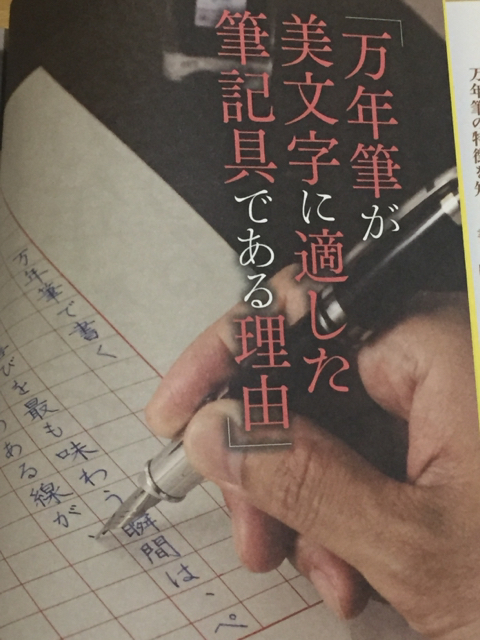 万年筆の特徴を知
「万年筆が
美文字に適した
筆記具である理由」
万年筆で書く
びを最も味わう瞬間は、ペ
ある線が